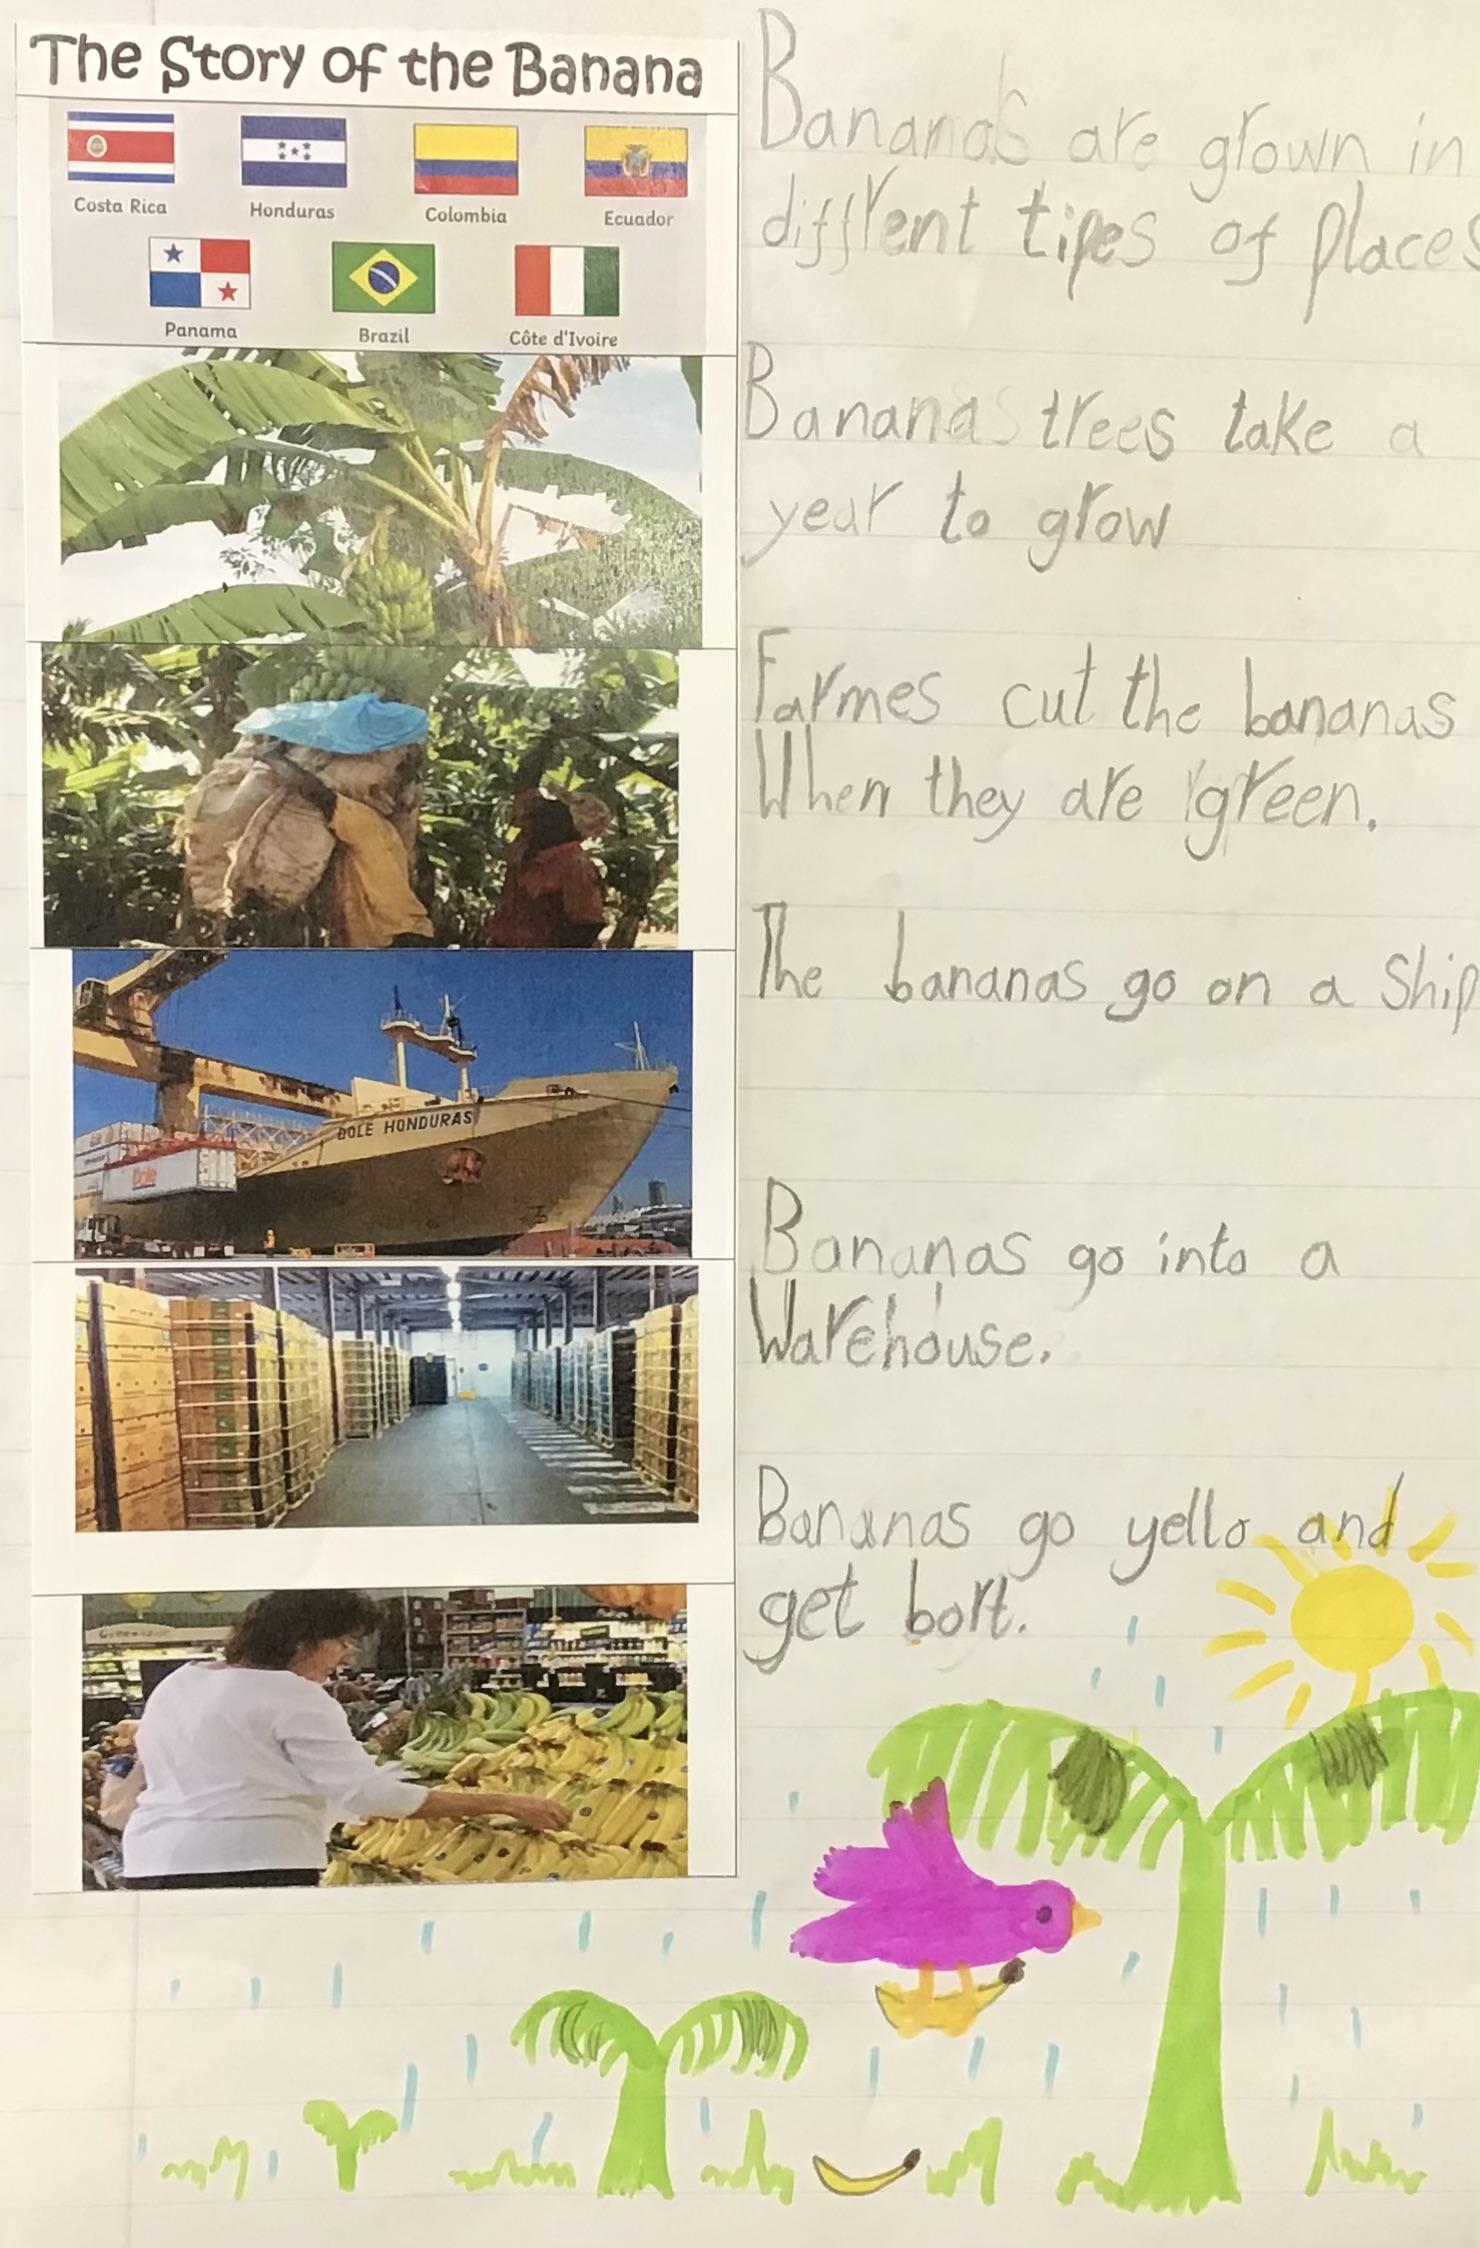 The Story of the Banana
Costa Rica Honduras Colombia Ecuador
Panama Brazil Côte d'Ivoire
Bananas are grown in
diffrent tipes of places
Banana trees take a
year to grow
Farmes cut the bananas
When they are green.
The bananas go on a Ship
DOLE HONDURAS
Dole
Bananas go into a
Warehouse.
Bananas go yello and
get bort.